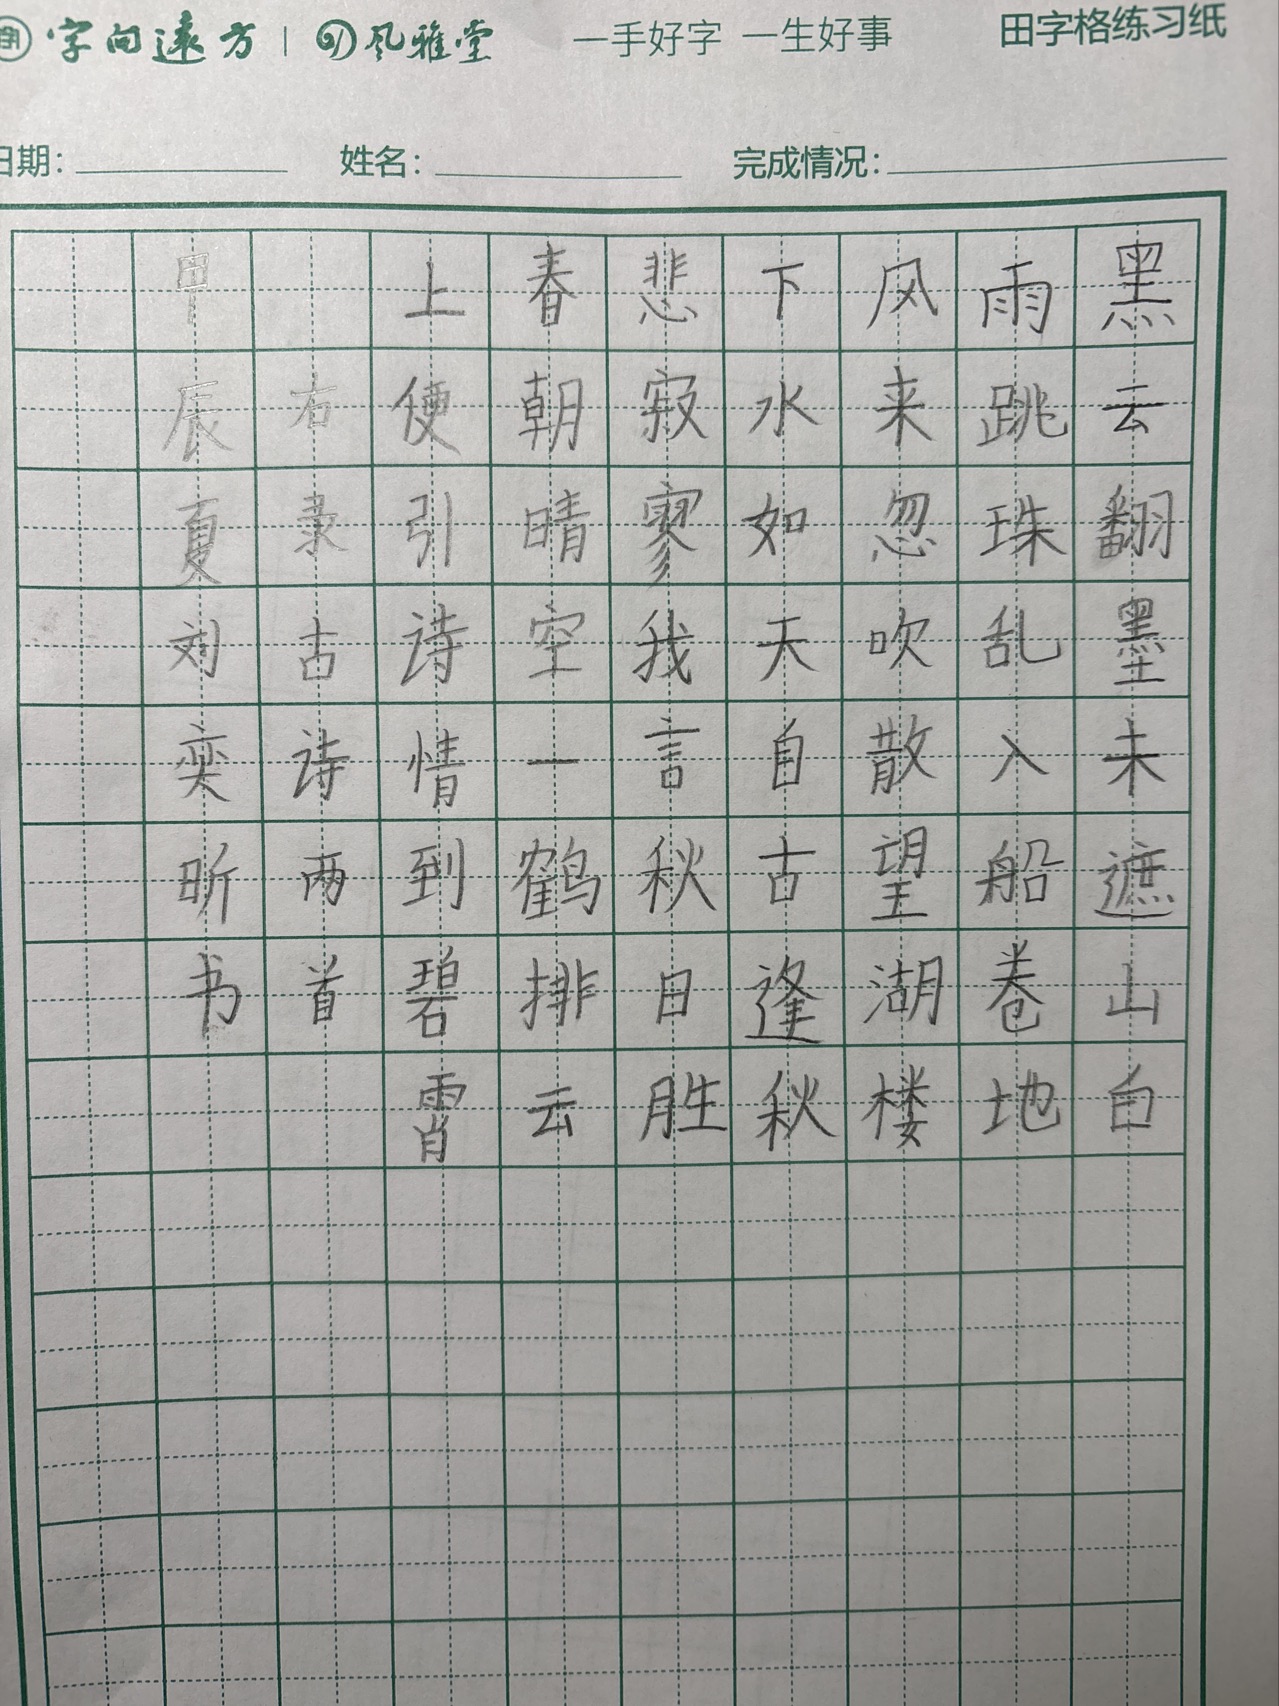 字向遠方 | 风雅堂 一手好字 一生好事 田字格练习纸
日期: 姓名: 完成情况:
黑云翻墨未遮山白
雨跳珠乱入船卷地
风来忽吹散望湖楼
下水如天自古逢秋
悲寂寥我言秋日胜
春朝晴空一鹤排云
上便引诗情到碧霄
右录古诗两首
甲辰夏刘奕昕书